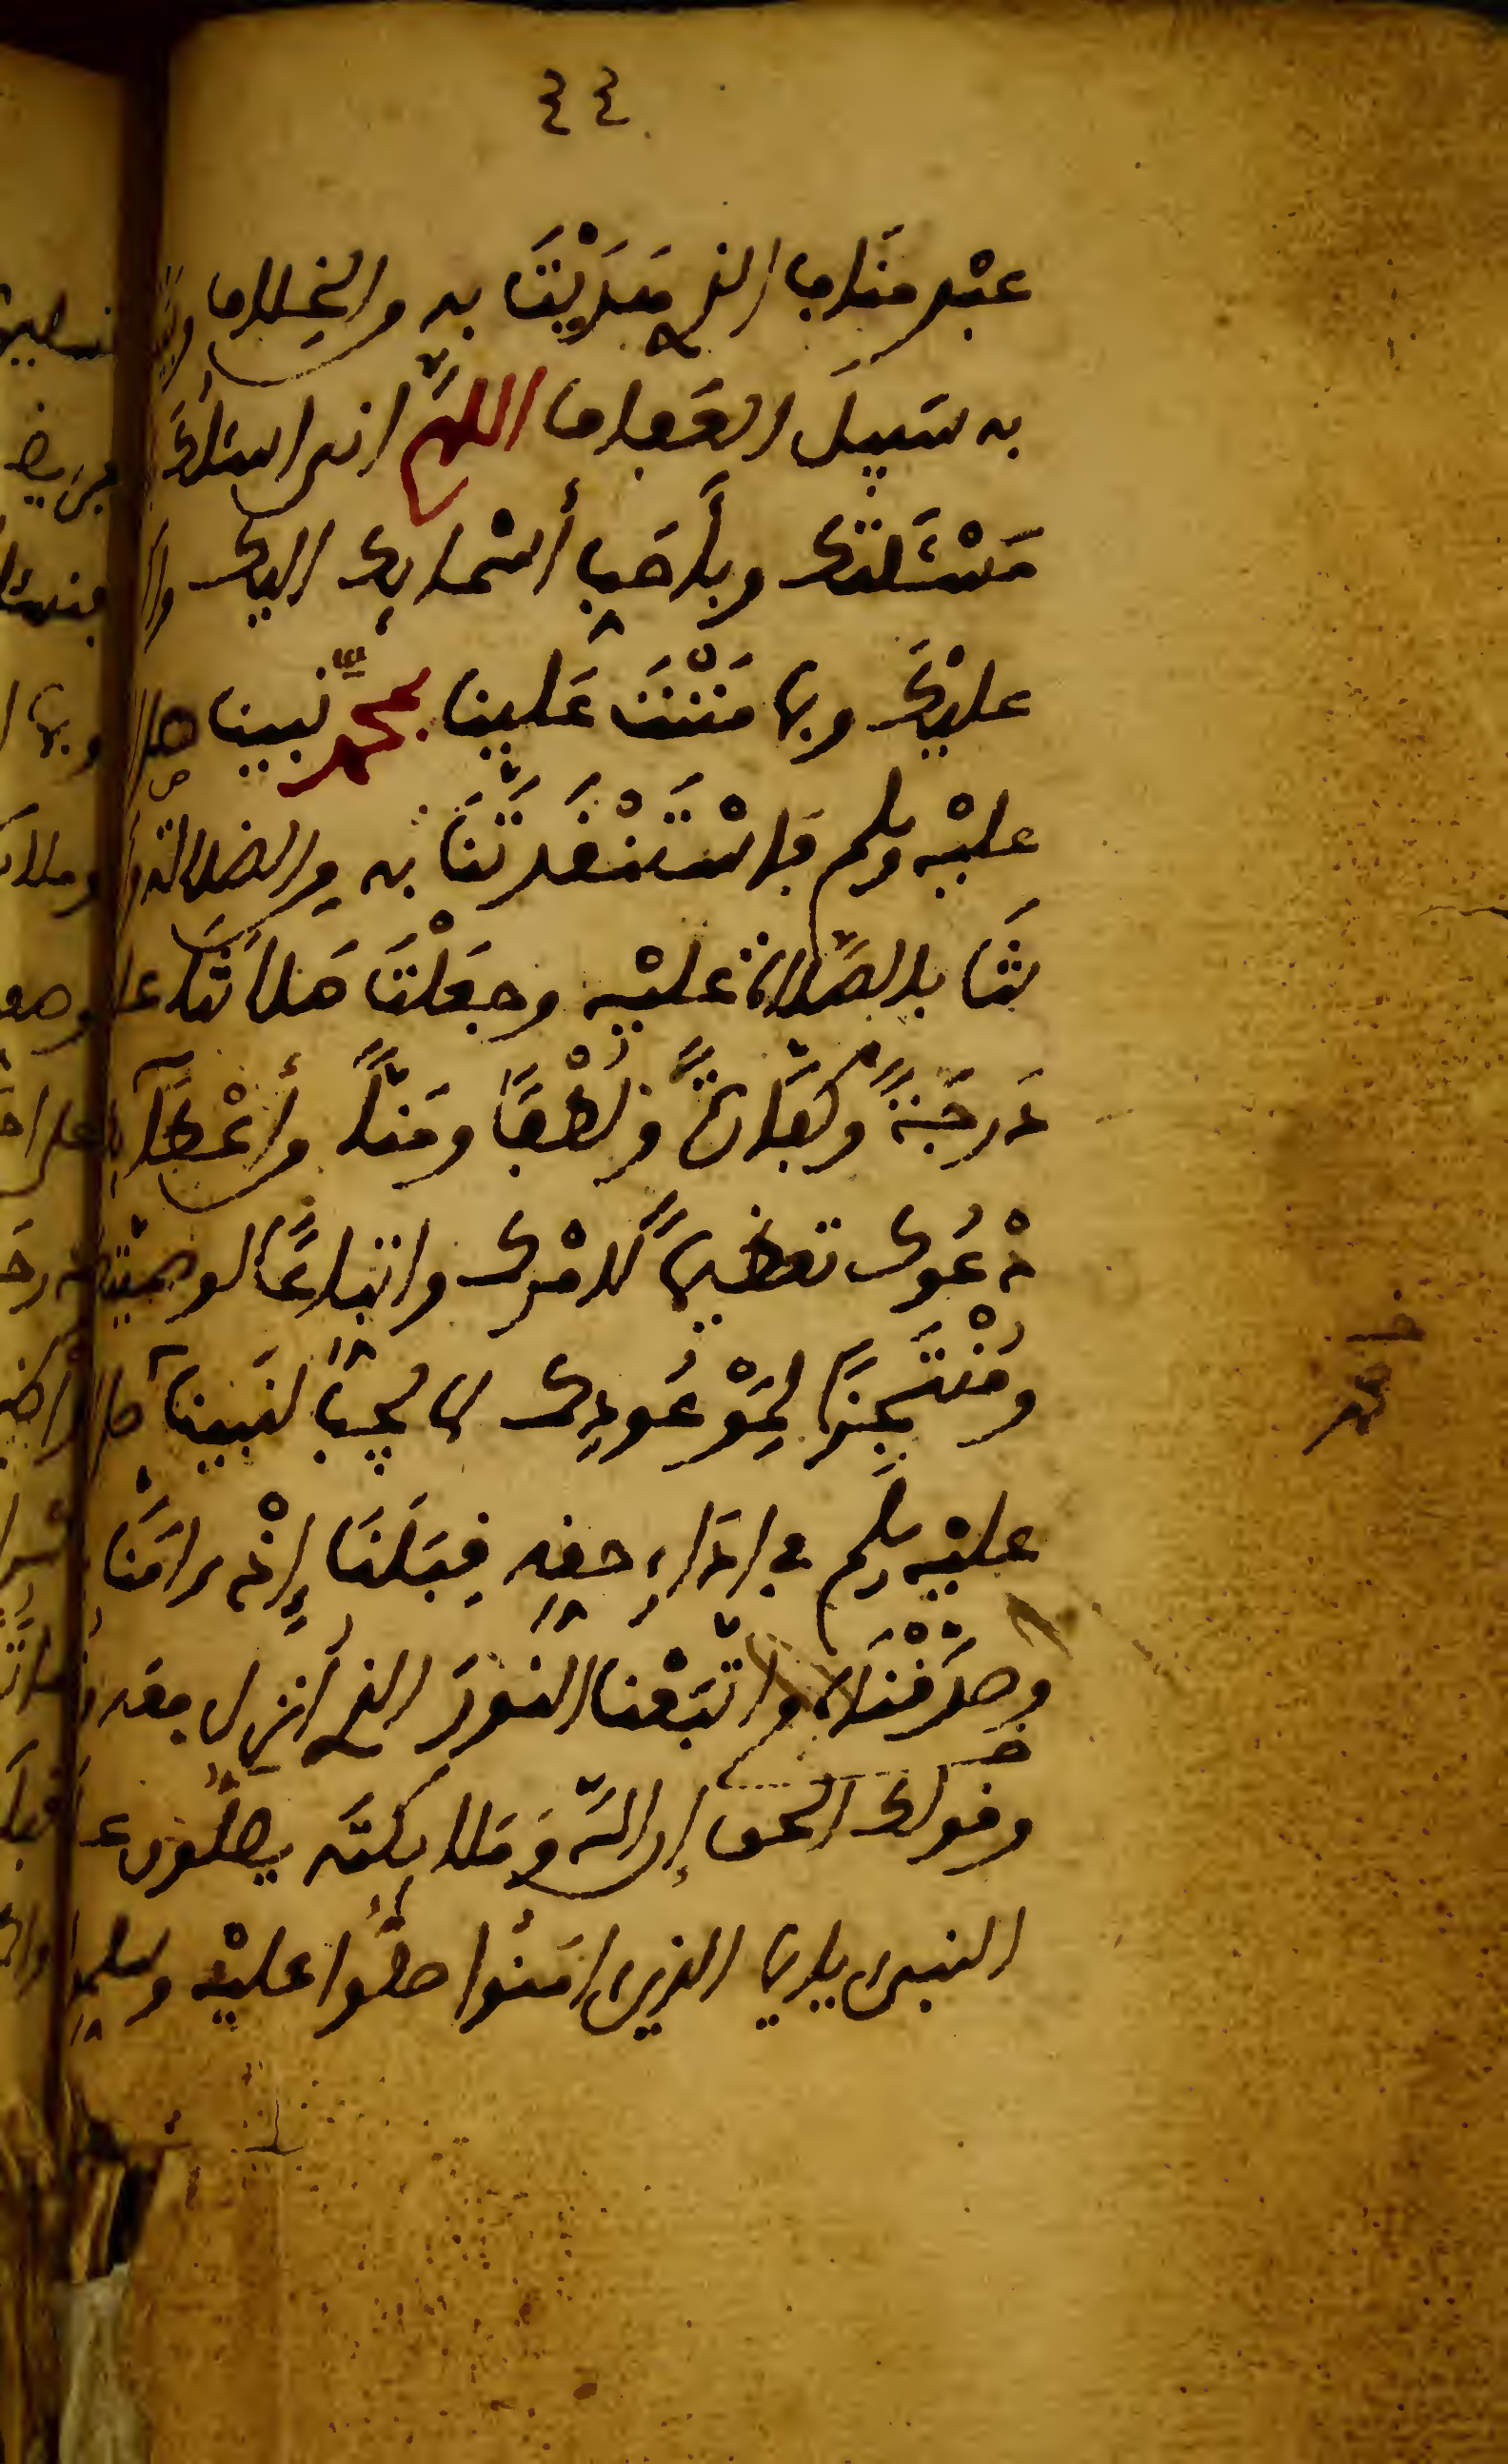 ٤٤
عبد مناف الذي هَدَيْتَنَا به من الخِلاف
به سَبيلَ العَفاف اللهمَّ اني اسئلك
مَسْئلتك وبأَحَبِّ أسْمائِك اليك
عليْكَ وبما مَنَنْتَ عَلينا بمحمَّد نبينا صلى
عليْه وسلم فاسْتَنْقَذْتَنَا به من الضلالة
تَنَا بالصَّلاة عليْه وجعَلْتَ صَلاتَنا
دَرجَةً وكفَّارةً ولُطْفًا ومَنًّا من أعْطَآ
دْعُوك تعظيمًا لأمْرك واتباعًا لوصيّتك
ومُنْتَجِزًا لِمَوْعُودِك لما يجبُ لنَبينآ صلى
عليْه وسلم في ادَاءِ حقِّهِ قِبَلَنَا إِذْ ءامَنَّا
وصدّقْنَاه واتَّبَعْنا النورَ الذي أنزل معه
وقولك الحق إن اللّه وَمَلائكتَه يصلُّون عـ
النبيء يايها الذين امَنُوا صلُّوا عليْه وسلِّموا